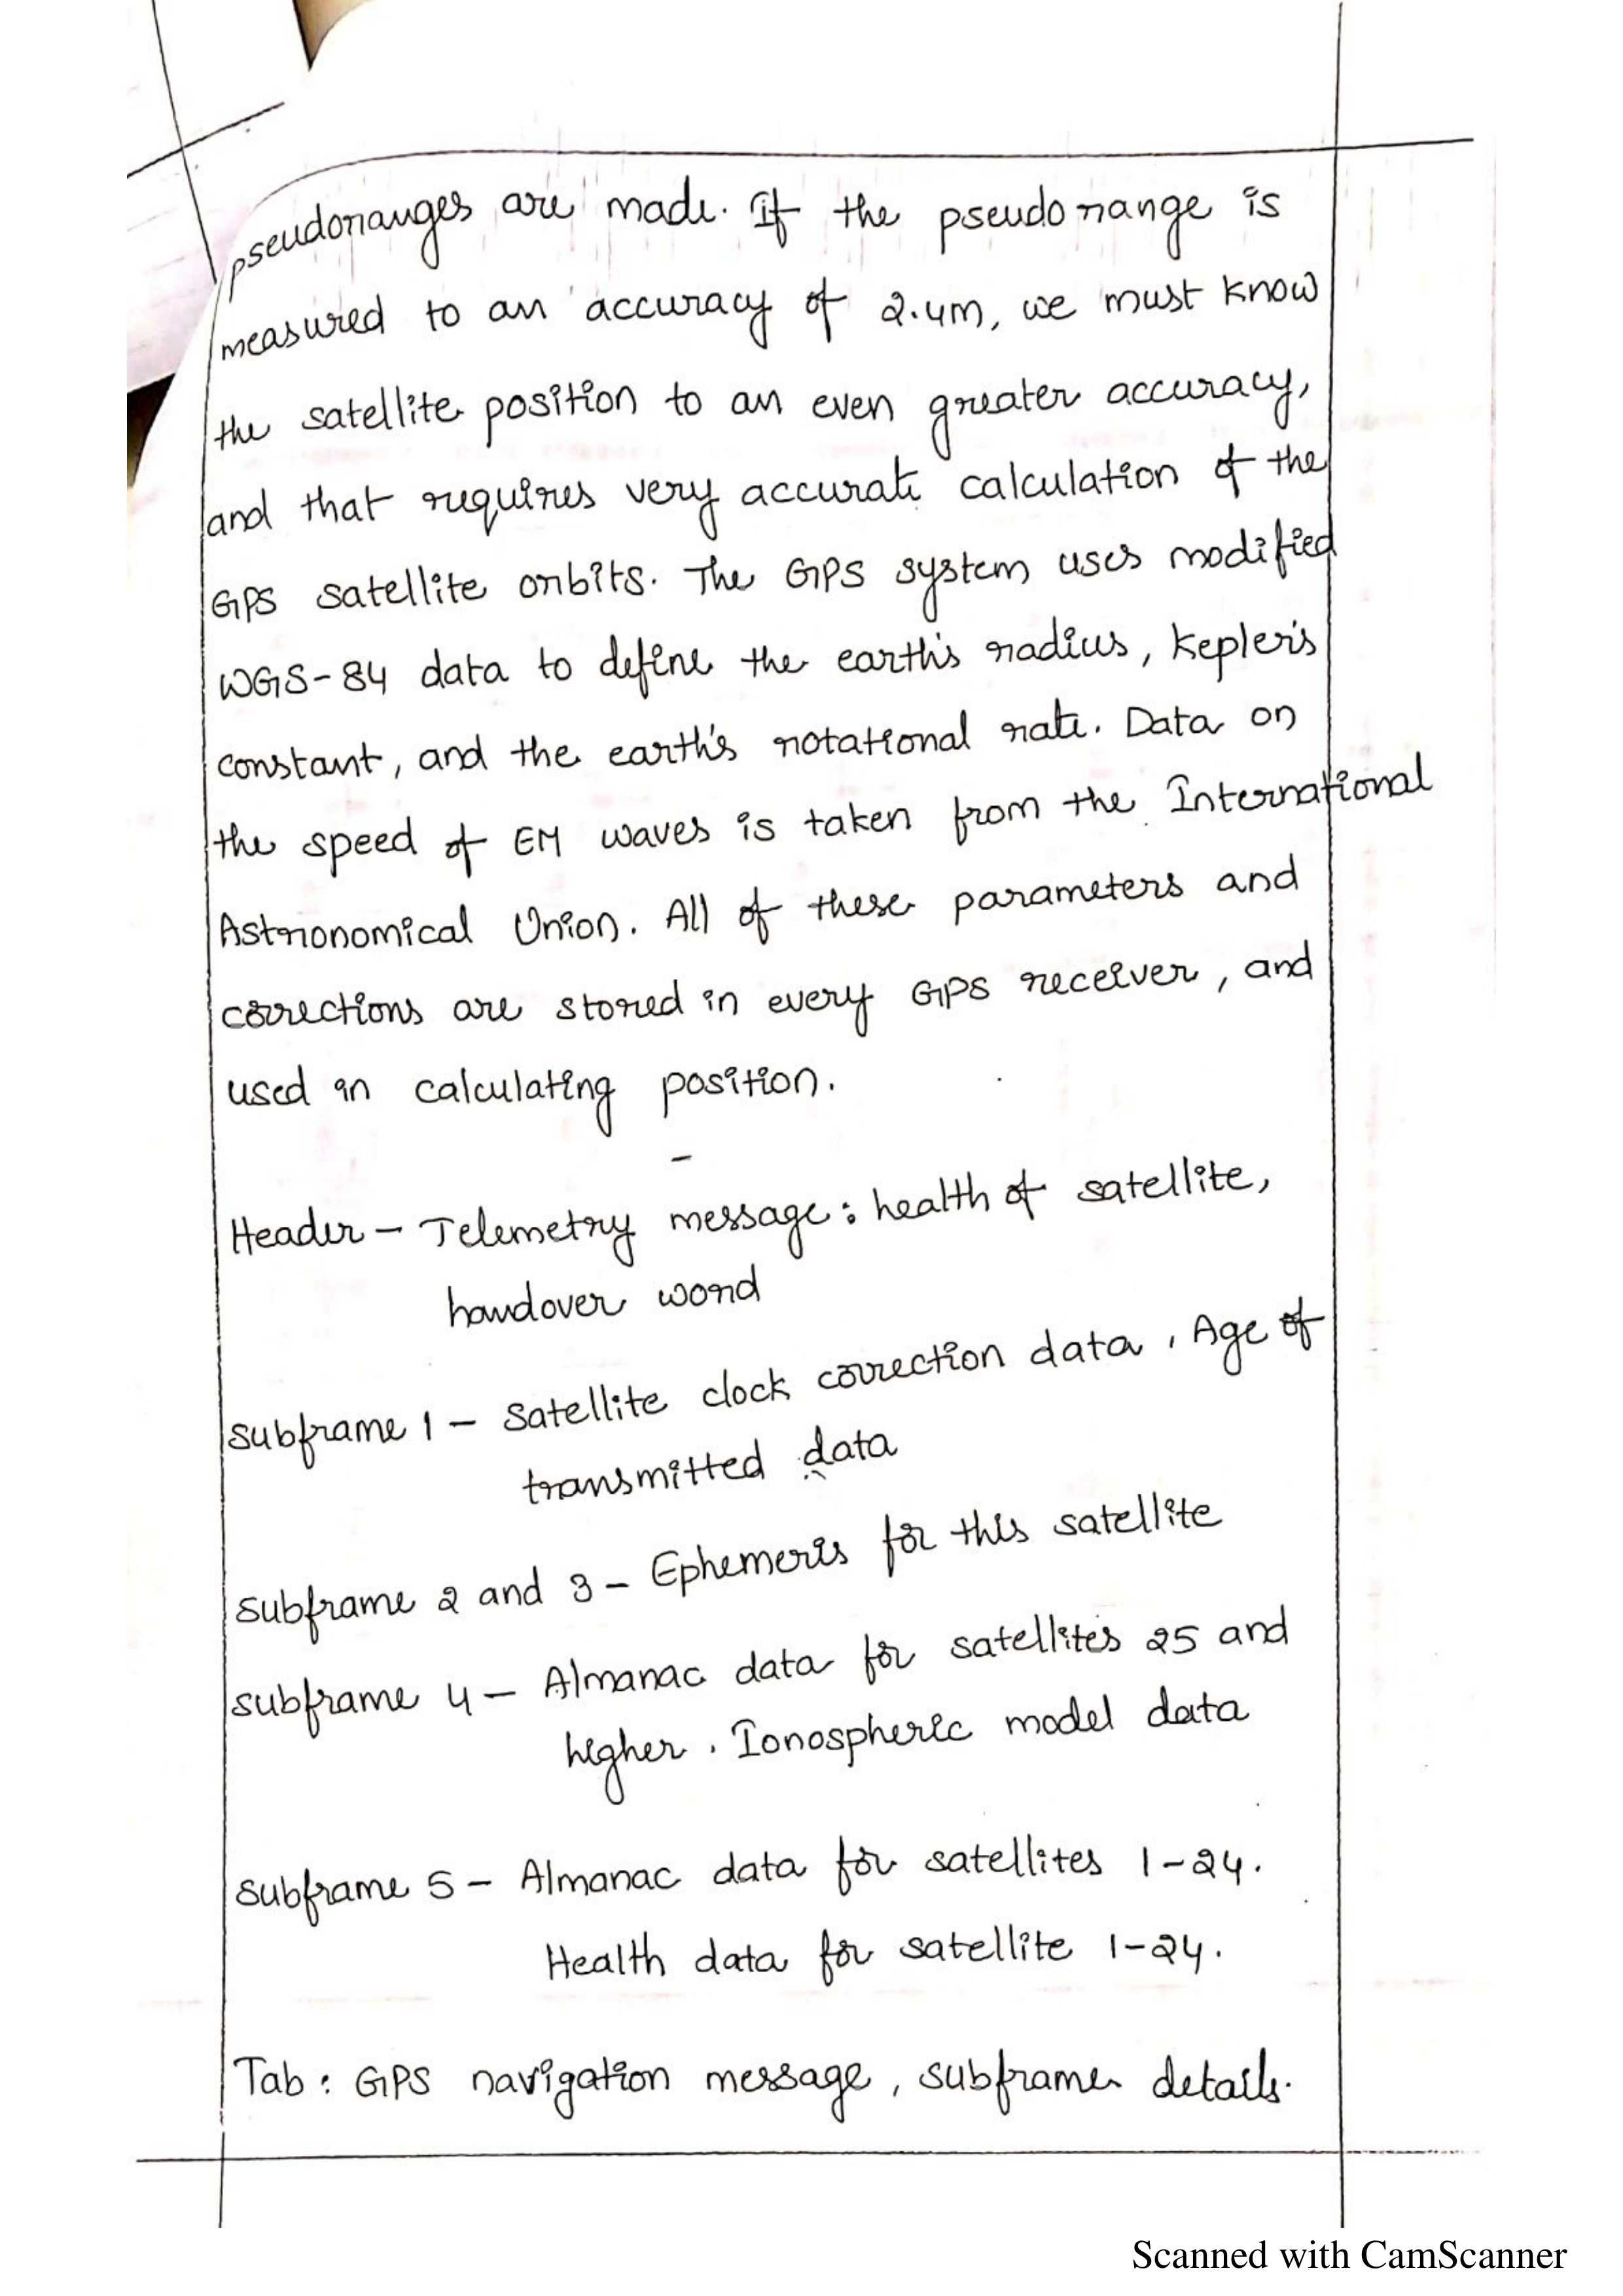 pseudoranges are made. If the pseudorange is
measured to an accuracy of 2.4m, we must know
the satellite position to an even greater accuracy,
and that requires very accurate calculation of the
GPS satellite orbits. The GPS system uses modified
WGS-84 data to define the earth's radius, Kepler's
constant, and the earth's rotational rate. Data on
the speed of EM waves is taken from the International
Astronomical Union. All of these parameters and
corrections are stored in every GPS receiver, and
used in calculating position.
Header - Telemetry message: health of satellite,
handover word
Subframe 1 - Satellite clock correction data, Age of
transmitted data
Subframe 2 and 3 - Ephemeris for this satellite
Subframe 4 - Almanac data for satellites 25 and
higher. Ionospheric model data
Subframe 5 - Almanac data for satellites 1-24.
Health data for satellite 1-24.
Tab: GPS navigation message, subframe details.
Scanned with CamScanner